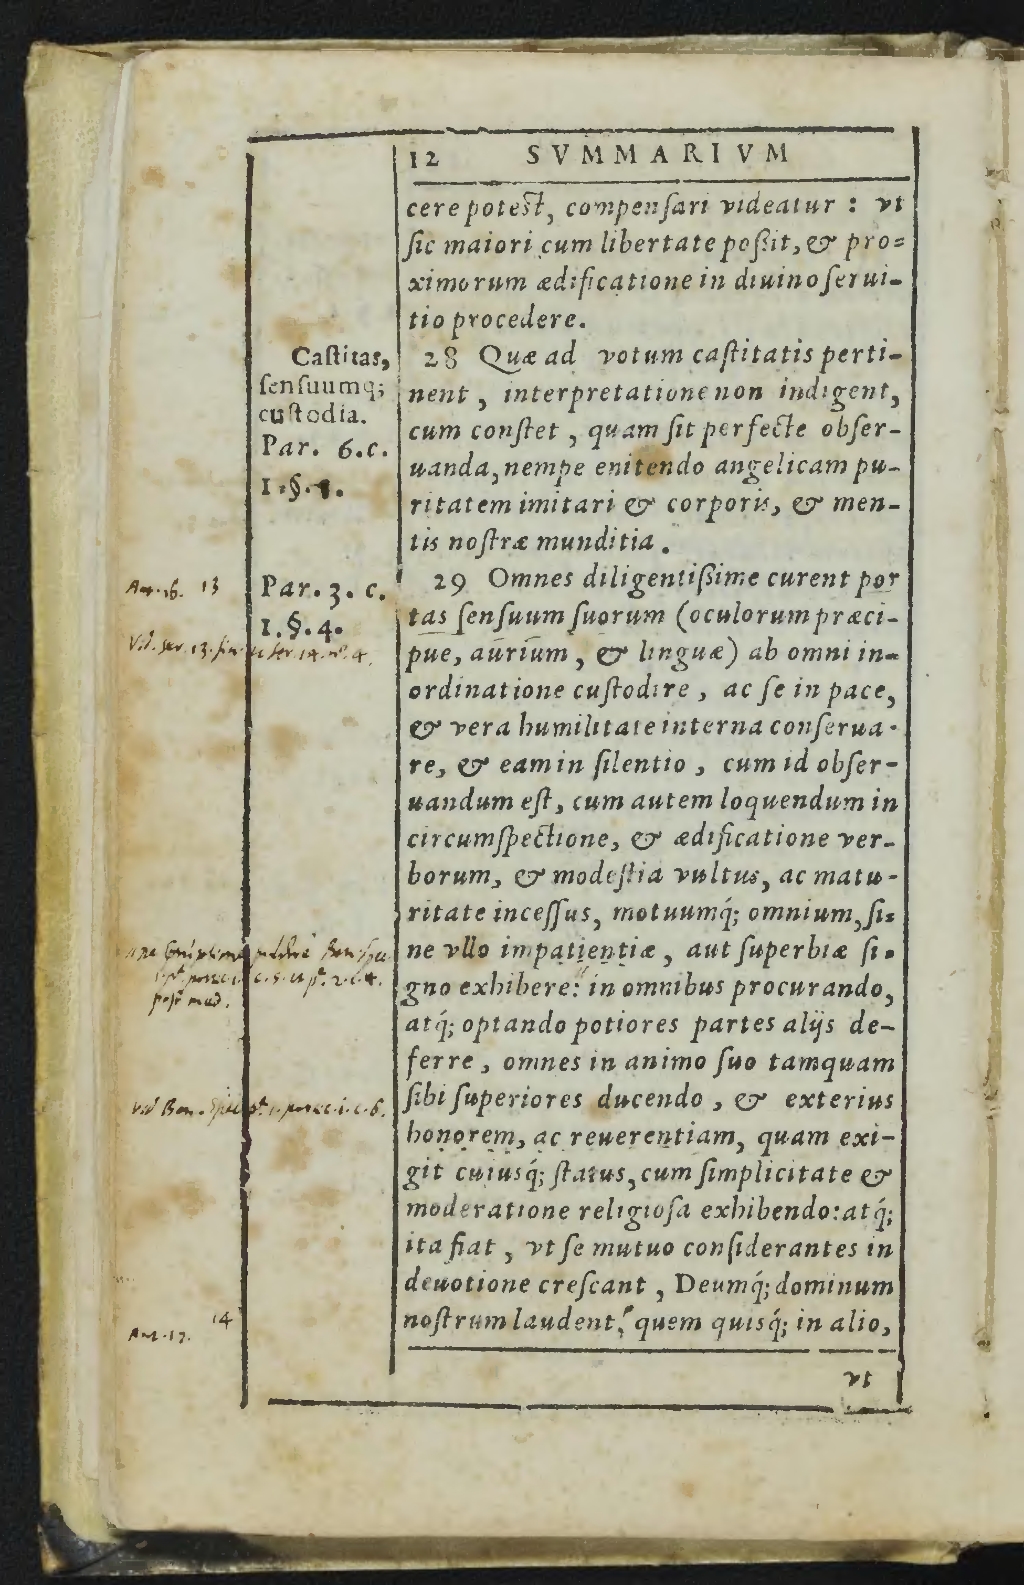 12 SVMMARIVM
cere potest, compensari videatur : vt
sic maiori cum libertate possit, & pro=
ximorum ædificatione in diuino serui-
tio procedere.
Castitas,
sensuumq;
custodia.
Par. 6.c.
1.§.1.
28 Quæ ad votum castitatis perti-
nent, interpretatione non indigent,
cum constet, quam sit perfecte obser-
uanda, nempe enitendo angelicam pu-
ritatem imitari & corporis, & men-
tis nostræ munditia.
Par. 3. c.
1.§.4.
13
29 Omnes diligentissime curent por
tas sensuum suorum (oculorum præci-
pue, aurium, & linguæ) ab omni in-
ordinatione custodire, ac se in pace,
& vera humilitate interna conserua-
re, & eam in silentio, cum id obser-
uandum est, cum autem loquendum in
circumspectione, & ædificatione ver-
borum, & modestia vultus, ac matu-
ritate incessus, motuumq́; omnium, si=
ne vllo impatientiæ, aut superbiæ si-
gno exhibere: in omnibus procurando,
atq́; optando potiores partes alijs de-
ferre, omnes in animo suo tamquam
sibi superiores ducendo, & exterius
honorem, ac reuerentiam, quam exi-
git cuiusq́; status, cum simplicitate &
moderatione religiosa exhibendo: atq́;
ita fiat, vt se mutuo considerantes in
deuotione crescant, Deumq́; dominum
nostrum laudent, quem quisq́; in alio,
14
vt